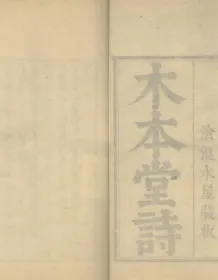 滄浪水屋藏板
木本堂詩